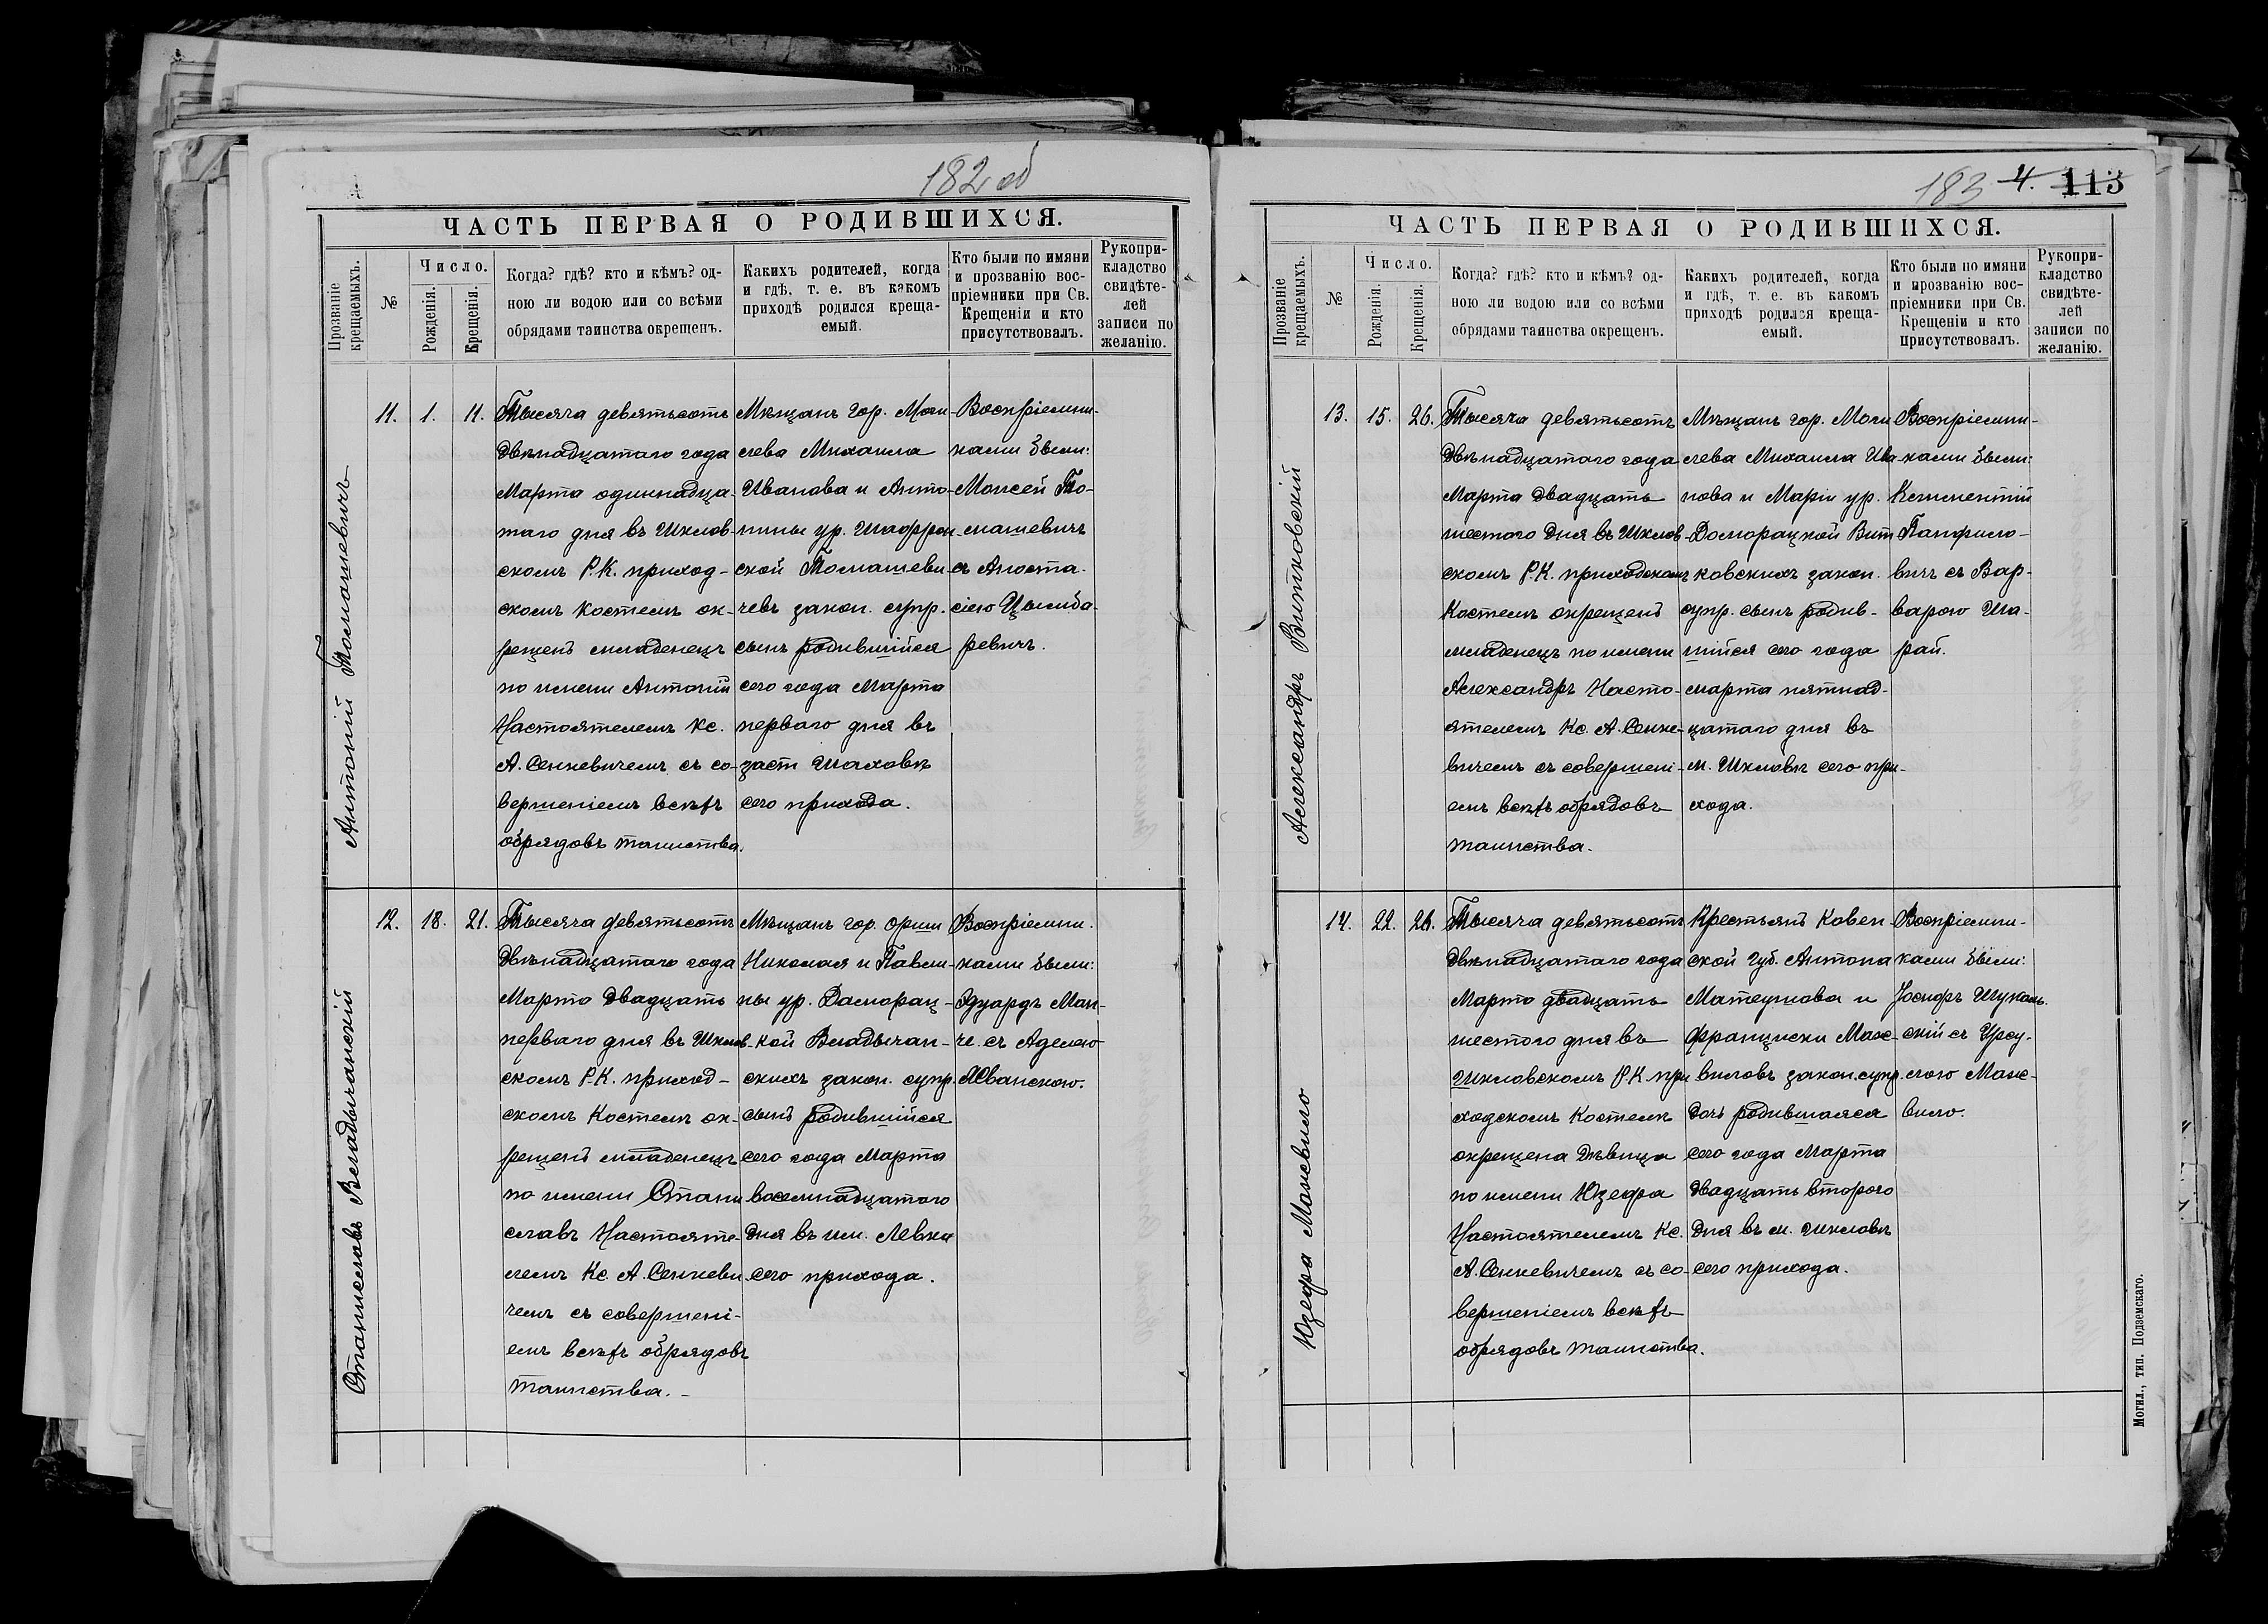 182 об
ЧАСТЬ ПЕРВАЯ О РОДИВШИХСЯ.
Прозваніе крещаемыхъ.
№
Число.
Рожденія.
Крещенія.
Когда? гдѣ? кто и кѣмъ? од-
ною ли водою или со всѣми
обрядами таинства окрещенъ.
Какихъ родителей, когда
и гдѣ, т. е. въ какомъ
приходѣ родился креща-
емый.
Кто были по имяни
и прозванію вос-
пріемники при Св.
Крещеніи и кто
присутствовалъ.
Рукопри-
кладство
свидѣте-
лей
записи по
желанію.
Антоній Томашевичъ
11.
1.
11.
Тысяча девятьсотъ
двѣнадцатаго года
Марта одиннадца-
таго дня въ Шклов-
скомъ Р.К. приход-
скомъ костелѣ ок-
рещенъ младенецъ
по имени Антоній
Настоятелемъ Кс.
А. Сенкевичемъ съ со-
вершеніемъ всѣхъ
обрядовъ таинства.
Мѣщанъ гор. Моги-
лева Михаила
Иванова и Анто-
нины ур. Шафран-
ской Томашеви-
чевъ закон. супр.
сынъ родившійся
сего года Марта
перваго дня въ
заст Шаховѣ
сего прихода.
Воспріемни-
ками были:
Моисей То-
машевичъ
съ Анаста-
сіею Цымба-
ревичъ.
Станиславъ Владычанскій
12.
18.
21.
Тысяча девятьсотъ
двѣнадцатаго года
Марта двадцать
перваго дня въ Шклов-
скомъ Р.К. приход-
скомъ Костелѣ ок-
рещенъ младенецъ
по имени Стани
славъ Настояте-
лемъ Кс. А. Сенкеви
чемъ съ совершені-
емъ всѣхъ обрядовъ
таинства.-
Мѣщанъ гор. Орши
Николая и Павли-
ны ур. Доморац-
кой Владычан-
скихъ закон. супр.
сынъ родившійся
сего года Марта
восемнадцатаго
дня въ им. Левки
сего прихода.
Воспріемни-
ками были:
Эдуардъ Ман-
че съ Аделею
183 4. 113
ЧАСТЬ ПЕРВАЯ О РОДИВШИХСЯ.
Прозваніе крещаемыхъ.
№
Число.
Рожденія.
Крещенія.
Когда? гдѣ? кто и кѣмъ? од-
ною ли водою или со всѣми
обрядами таинства окрещенъ.
Какихъ родителей, когда
и гдѣ, т. е. въ какомъ
приходѣ родился креща-
емый.
Кто были по имяни
и прозванію вос-
пріемники при Св.
Крещеніи и кто
присутствовалъ.
Рукопри-
кладство
свидѣте-
лей
записи по
желанію.
Александръ Витковскій
13.
15.
26.
Тысяча девятьсотъ
двѣнадцатаго года
Марта двадцать
шестого дня въ Шклов-
скомъ Р.К. приходскомъ
Костелѣ окрещенъ
младенецъ по имени
Александръ Насто-
ятелемъ Кс. А. Сенке-
вичемъ съ совершені-
емъ всѣхъ обрядовъ
таинства.
Мѣщанъ гор. Моги
лева Михаила Ива-
нова и Маріи ур.
Доморацкой Вит
ковскихъ закон.
супр. сынъ родив-
шійся сего года
марта пятнад-
цатаго дня въ
м. Шкловѣ сего при-
хода.
Воспріемни-
ками были:
Клементій
Панфило-
вичъ съ Вар-
варою Ша-
рай.
Юзефа Можевило
14.
22.
26.
Тысяча девятьсотъ
двѣнадцатаго года
Марта двадцать
шестого дня въ
Шкловскомъ Р.К при
ходскомъ Костелѣ
окрещена дѣвица
по имени Юзефа
Настоятелемъ Кс.
А. Сенкевичемъ съ со-
вершеніемъ всѣхъ
обрядовъ таинства.
Крестьянъ Ковен
ской губ. Антона
Матеушова и
Францишки Маже-
виловъ закон. супр.
дочь родившаяся
сего года Марта
двадцать второго
дня въ м. Шкловѣ
сего прихода.
Воспріемни-
ками были:
Іосифъ
скій съ Урсу-
лою Може-
вило.
Могил., тип. Подземскаго.